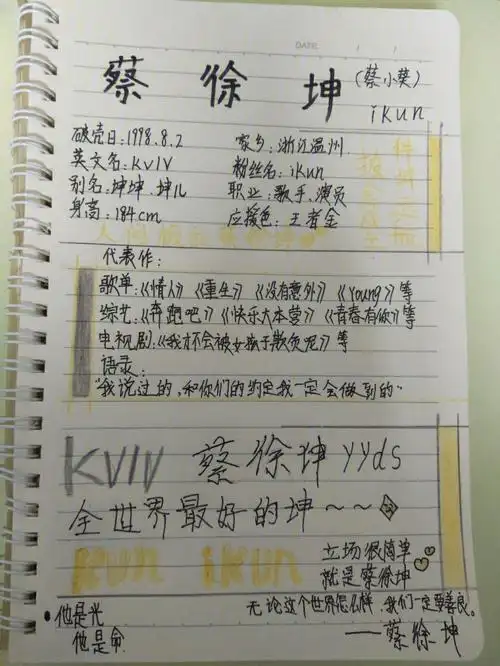 DATE
蔡徐坤
（蔡小葵）
ikun
破壳日:1998.8.2
家乡:浙江温州
英文名:KVIV
粉丝名:ikun
别名:坤坤.坤儿
职业:歌手、演员
身高:184cm
应援色:王者金
代表作:
歌单:《情人》《重生》《没有意外》《Young》等
综艺:《奔跑吧》《快乐大本营》《青春有你》等
电视剧:《我才不会被女孩子欺负呢》等
语录:
"我说过的,和你们的约定我一定会做到的"
KVIV 蔡徐坤yyds
全世界最好的坤~~
Kun ikun
立场很简单
就是蔡徐坤
他是光
他是命
无论这个世界怎么样,我们一定要善良。
——蔡徐坤